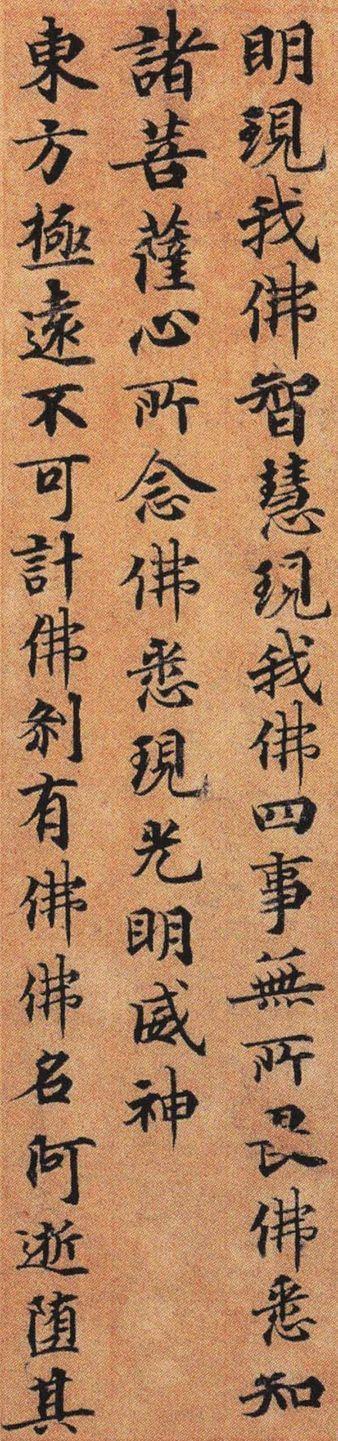 明現我佛智慧現我佛四事無所畏佛悉知
諸菩薩心所念佛悉現光明威神
東方極遠不可計佛刹有佛佛名阿逝墮其